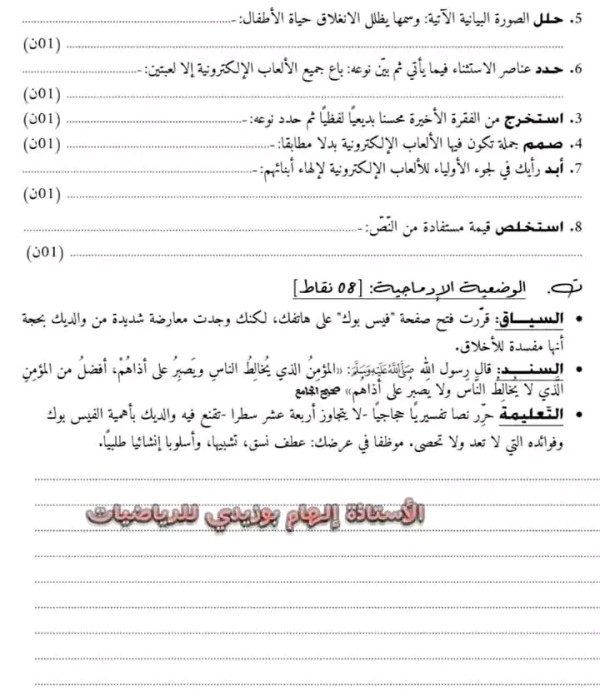 5. حلل الصورة البيانية الآتية: وسمها يظلل الانغلاق حياة الأطفال:-
(01ن)
6. حدد عناصر الاستثناء فيما يأتي ثم بيّن نوعه: باع جميع الألعاب الإلكترونية إلا لعبتين:-
(01ن)
3. استخرج من الفقرة الأخيرة محسنا بديعيًا لفظيًا ثم حدد نوعه: (01ن)
4. صمم جملة تكون فيها الألعاب الإلكترونية بدلا مطابقا:- (01ن)
7. أبد رأيك في لجوء الأولياء للألعاب الإلكترونية لإلهاء أبنائهم:-
(01ن)
8. استخلص قيمة مستفادة من النّصّ:-
(01ن)
ت. الوضعية الإدماجية: [08 نقاط]
• السياق: قرّرت فتح صفحة "فيس بوك" على هاتفك، لكنك وجدت معارضة شديدة من والديك بحجة
أنها مفسدة للأخلاق.
• السند: قال رسول الله ﷺ: «المؤمِنُ الذي يُخالِطُ الناسَ ويَصبِرُ على أذاهُمْ، أفضلُ من المؤمِنِ
الَّذي لا يُخالِطُ النَّاسَ ولا يَصبرُ على أذاهُمْ» صحيح الجامع
• التعليمة: حرّر نصا تفسيريًا حجاجيًا -لا يتجاوز أربعة عشر سطرا -تقنع فيه والديك بأهمية الفيس بوك
وفوائده التي لا تعد ولا تحصى. موظفا في عرضك: عطف نسق، تشبيها، وأسلوبا إنشائيا طلبيًا.
الأستاذة إلهام بوزيدي للرياضيات